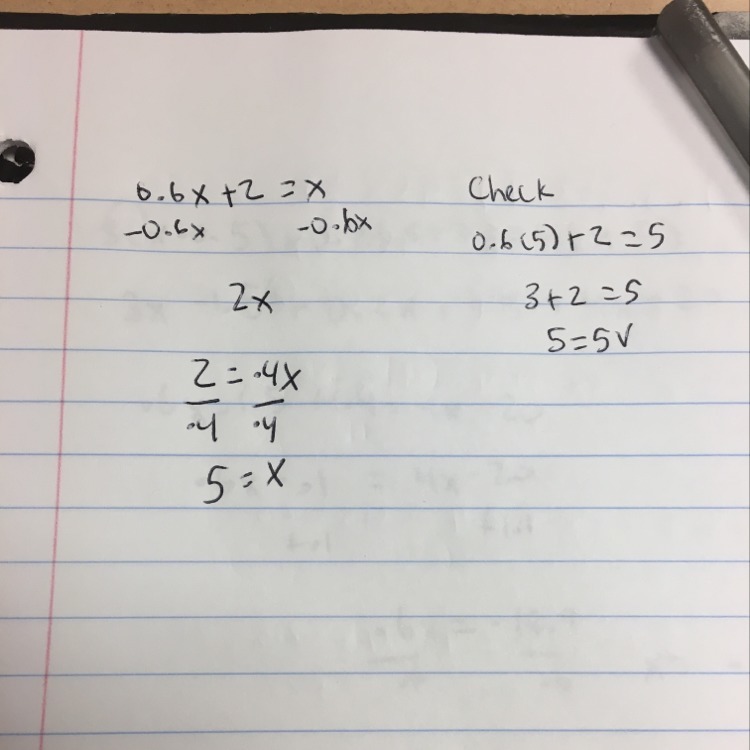 0.6x + 2 = x
-0.6x -0.6x
2x
2 = .4x
.4 .4
5 = x
Check
0.6(5) + 2 = 5
3 + 2 = 5
5 = 5 ✓